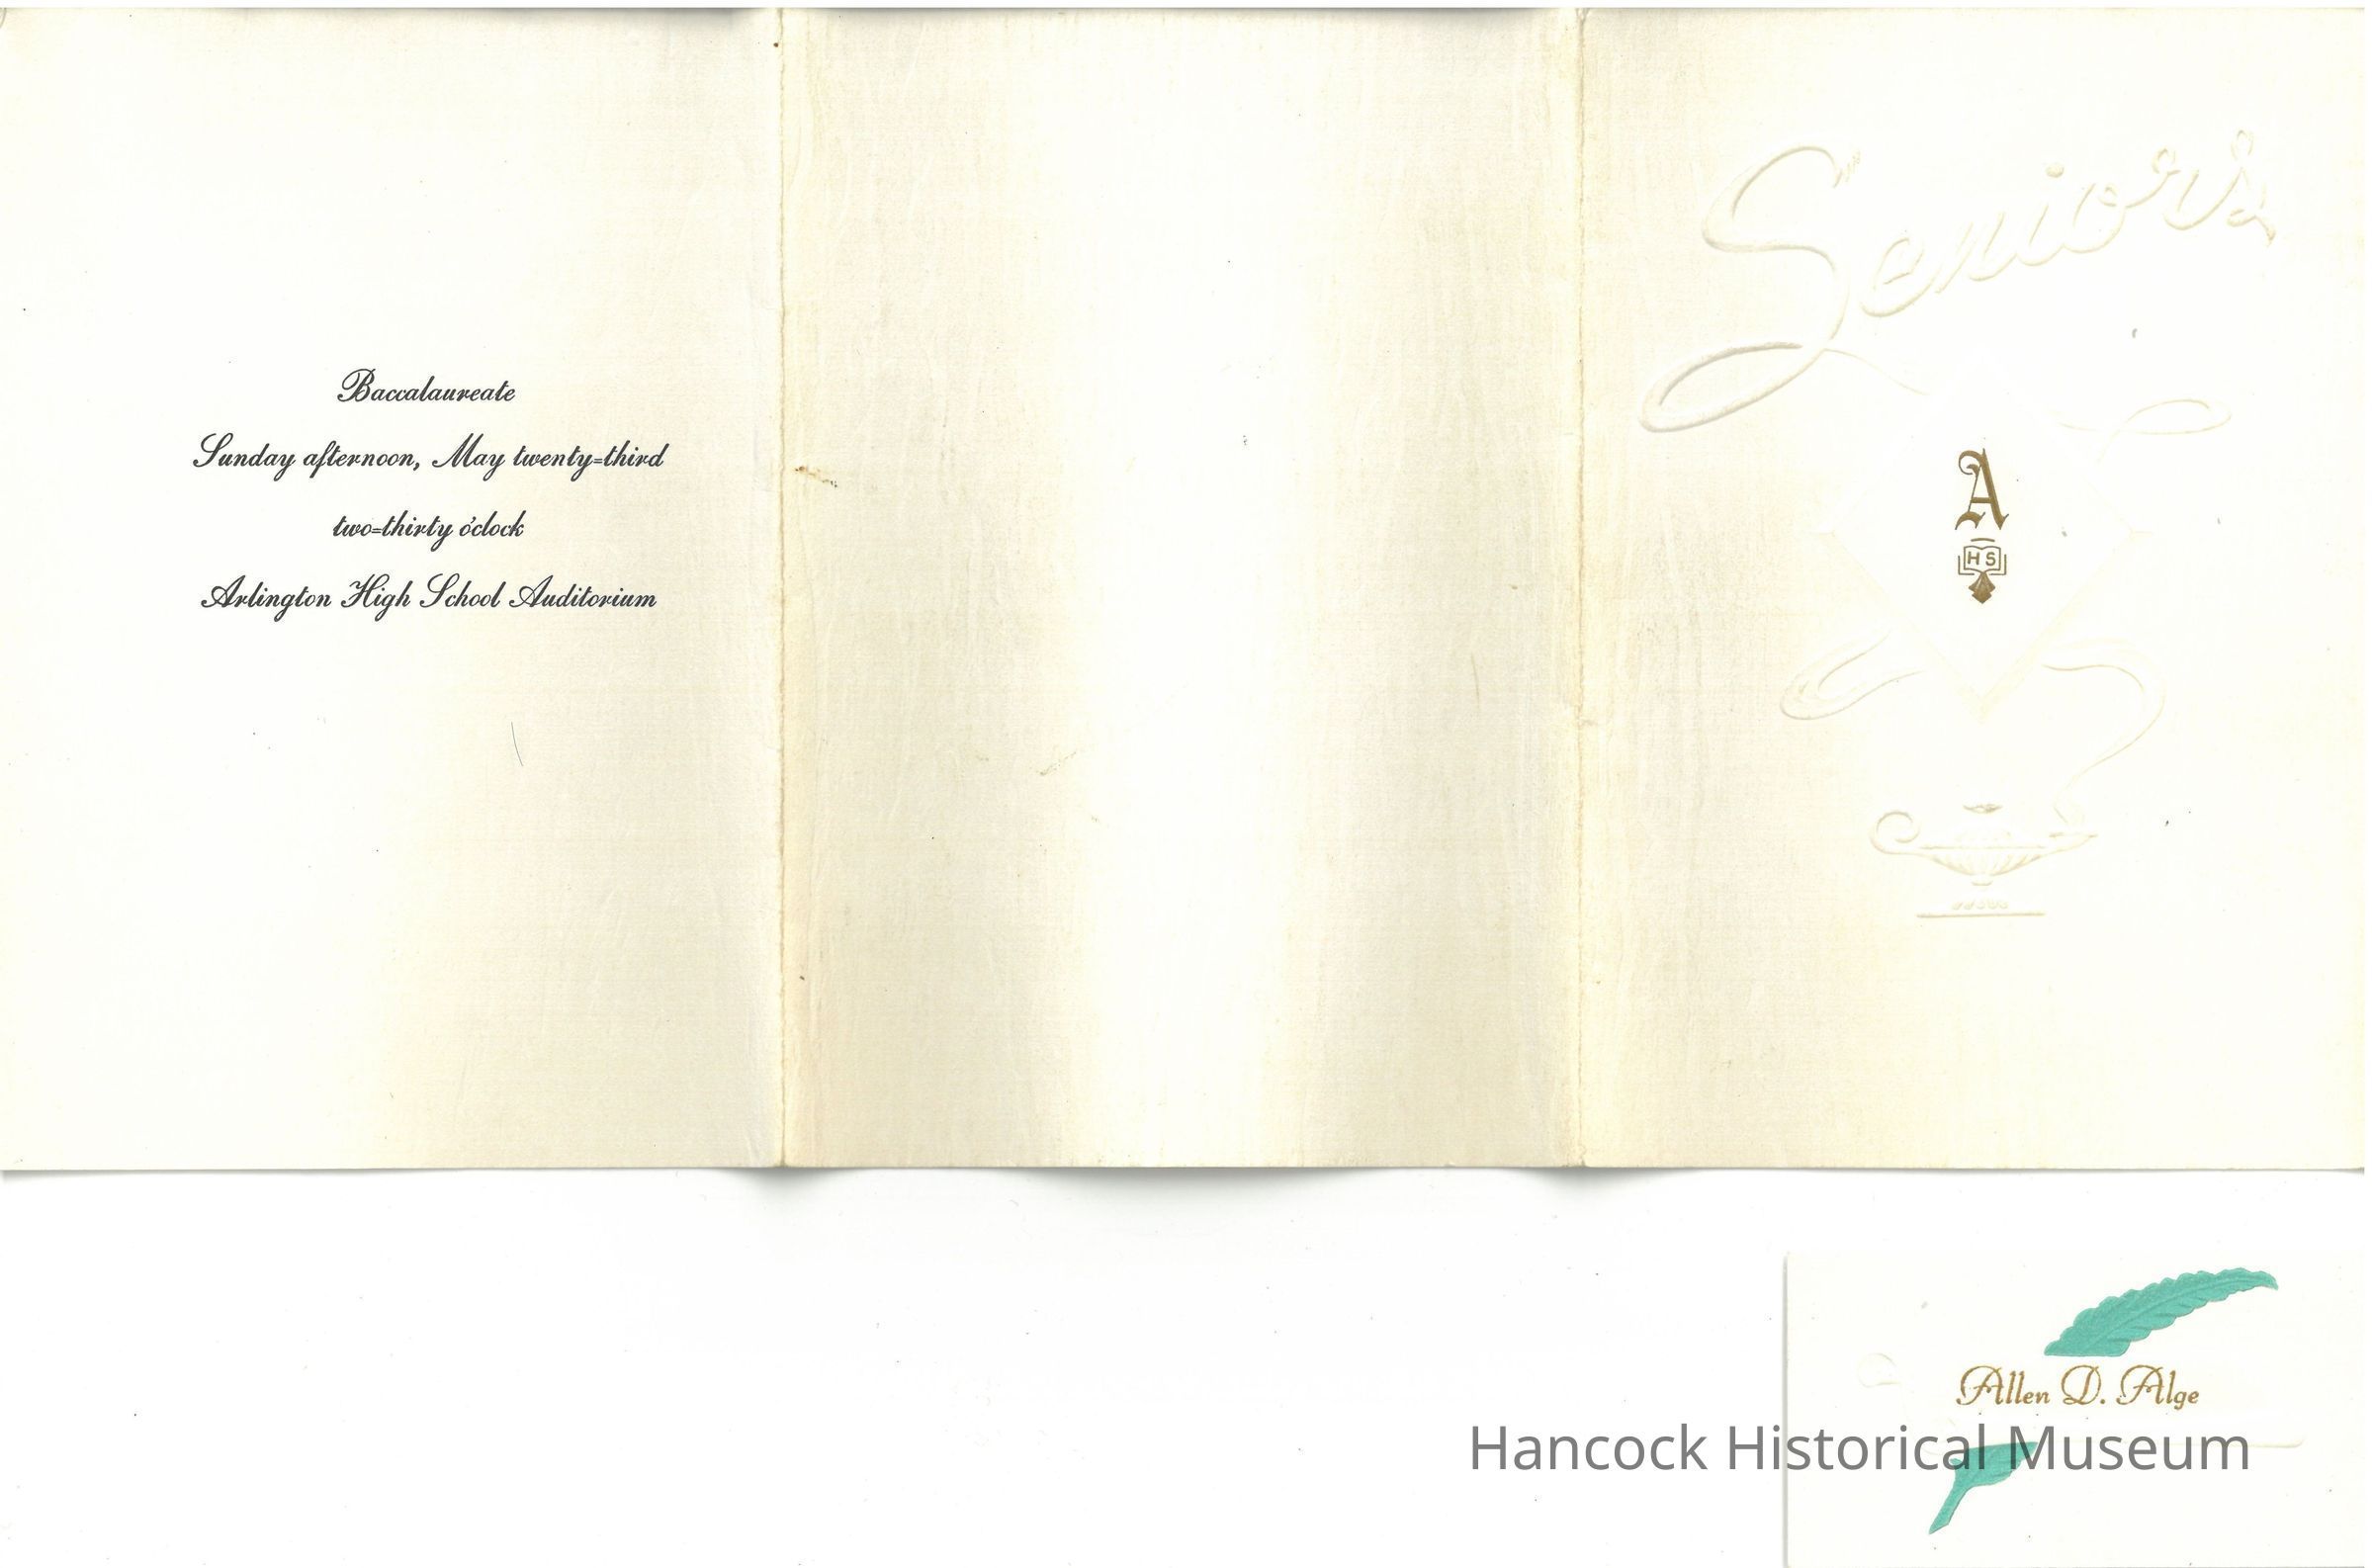 Baccalaureate
Sunday afternoon, May twenty=third
two=thirty o'clock
Arlington High School Auditorium
Seniors
A
HS
Allen D. Alge
Hancock Historical Museum